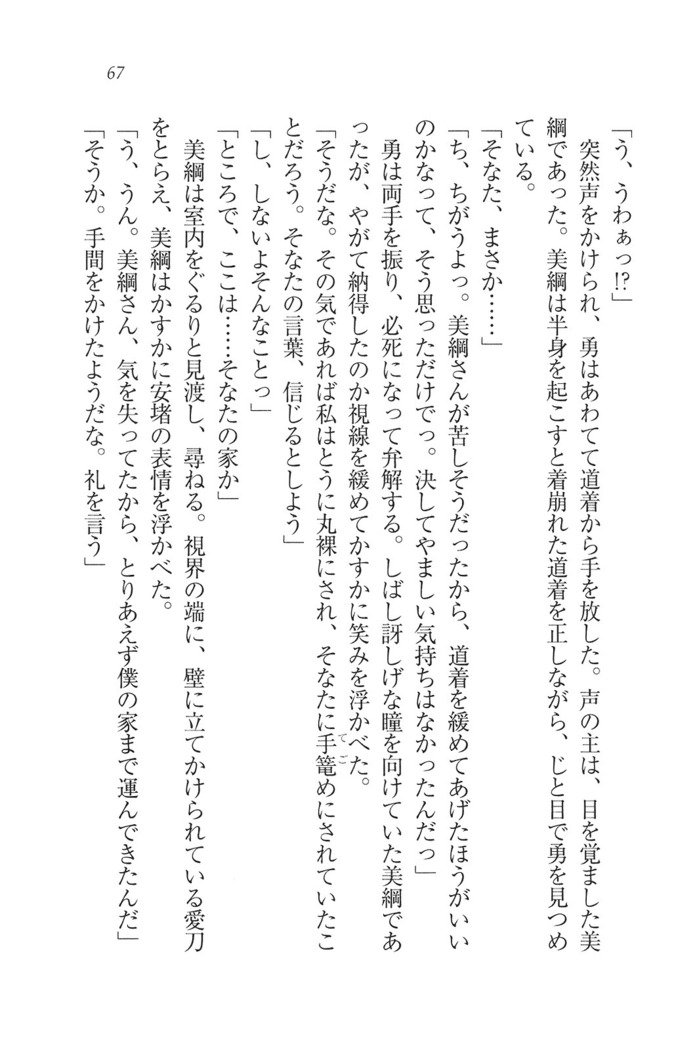 67
「う、うわぁっ!?」
　突然声をかけられ、勇はあわてて道着から手を放した。声の主は、目を覚ました美
綱であった。美綱は半身を起こすと着崩れた道着を正しながら、じと目で勇を見つめ
ている。
「そなた、まさか……」
「ち、ちがうよっ。美綱さんが苦しそうだったから、道着を緩めてあげたほうがいい
のかなって、そう思っただけでっ。決してやましい気持ちはなかったんだっ」
　勇は両手を振り、必死になって弁解する。しばし訝しげな瞳を向けていた美綱であ
ったが、やがて納得したのか視線を緩めてかすかに笑みを浮かべた。
「そうだな。その気であれば私はとうに丸裸にされ、そなたに手篭めにされていたこ
とだろう。そなたの言葉、信じるとしよう」
「し、しないよそんなことっ」
「ところで、ここは……そなたの家か」
　美綱は室内をぐるりと見渡し、尋ねる。視界の端に、壁に立てかけられている愛刀
をとらえ、美綱はかすかに安堵の表情を浮かべた。
「う、うん。美綱さん、気を失ってたから、とりあえず僕の家まで運んできたんだ」
「そうか。手間をかけたようだな。礼を言う」